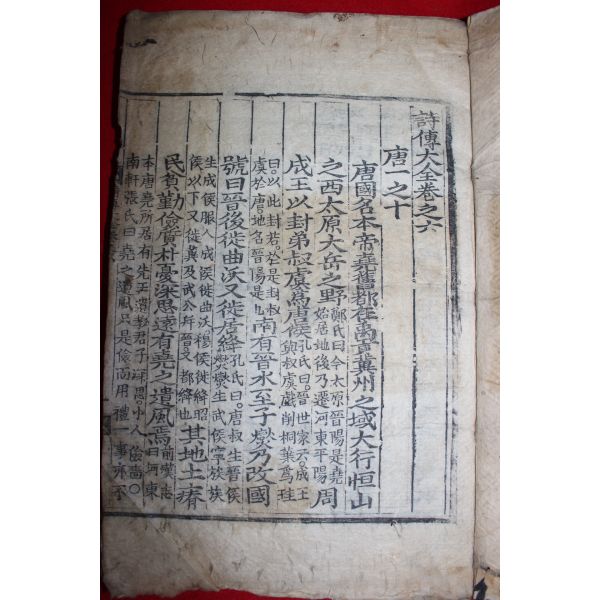 詩傳大全卷之六
唐一之十
唐國名本帝堯舊都在禹貢冀州之域大行恒山
之西太原大岳之野
鄭氏曰今太原晉陽是堯
始居地後乃遷河東平陽
周
成王以封弟叔虞為唐侯
孔氏曰晉世家云成王
與叔虞戲削桐葉為珪
曰以此封若於是封叔
虞於唐地名晉陽是也
南有晉水至子燮乃改國
號曰晉後徙曲沃又徙居絳
孔氏曰唐叔生晉侯
燮燮生武侯寧族族
生成侯服人成侯徙曲沃穆侯徙絳昭
侯以下又徙翼及武公并晉又都絳也
其地土瘠
民貧勤儉質朴憂深思遠有堯之遺風焉
前漢志
曰河東
本唐堯所居有先王遺教君子深思小人儉嗇○
南軒張氏曰堯之遺風只是儉而用禮一事亦不